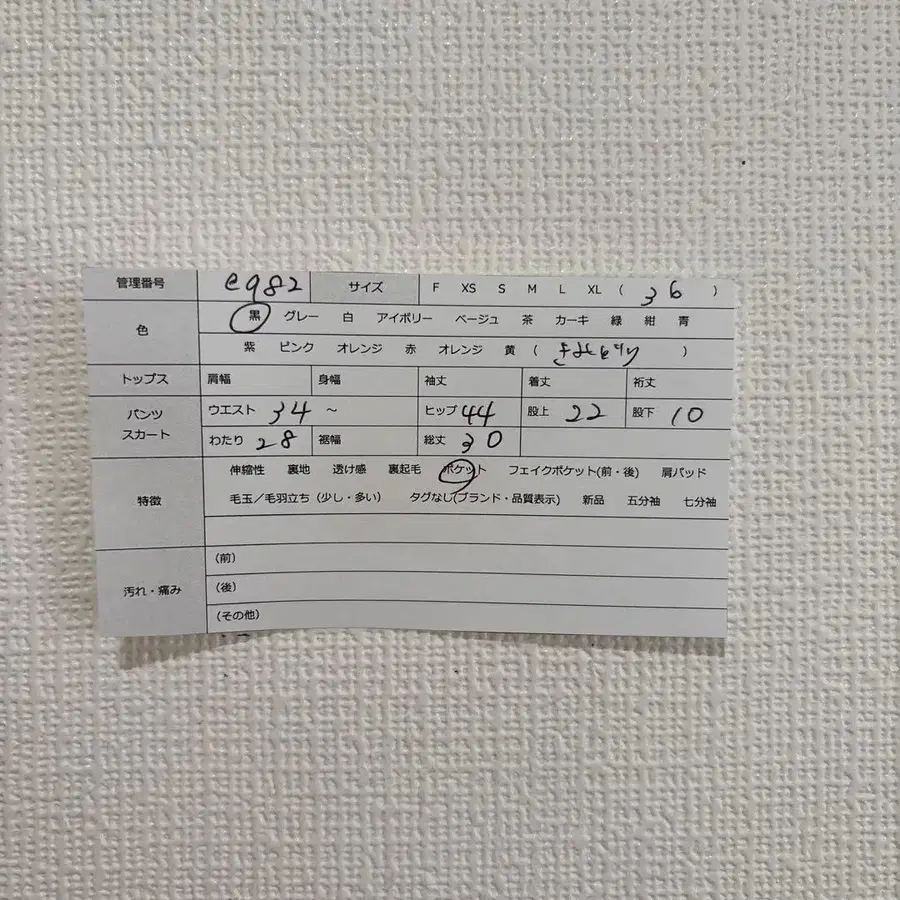 管理番号 e982 サイズ F XS S M L XL ( 36 )
色 黒 グレー 白 アイボリー ベージュ 茶 カーキ 緑 紺 青
紫 ピンク オレンジ 赤 オレンジ 黄 ( )
トップス 肩幅 身幅 袖丈 着丈 裄丈
パンツ スカート ウエスト 34 ~ ヒップ 44 股上 22 股下 10
わたり 28 裾幅 総丈 30
特徴 伸縮性 裏地 透け感 裏起毛 ポケット フェイクポケット(前・後) 肩パッド
毛玉/毛羽立ち (少し・多い) タグなし(ブランド・品質表示) 新品 五分袖 七分袖
汚れ・痛み (前)
(後)
(その他)